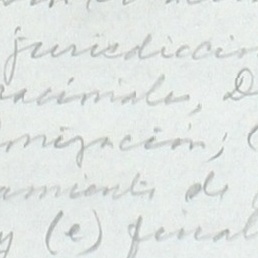 jurisdicción
nacionales, D
onización; (
amiento de
y (e) final